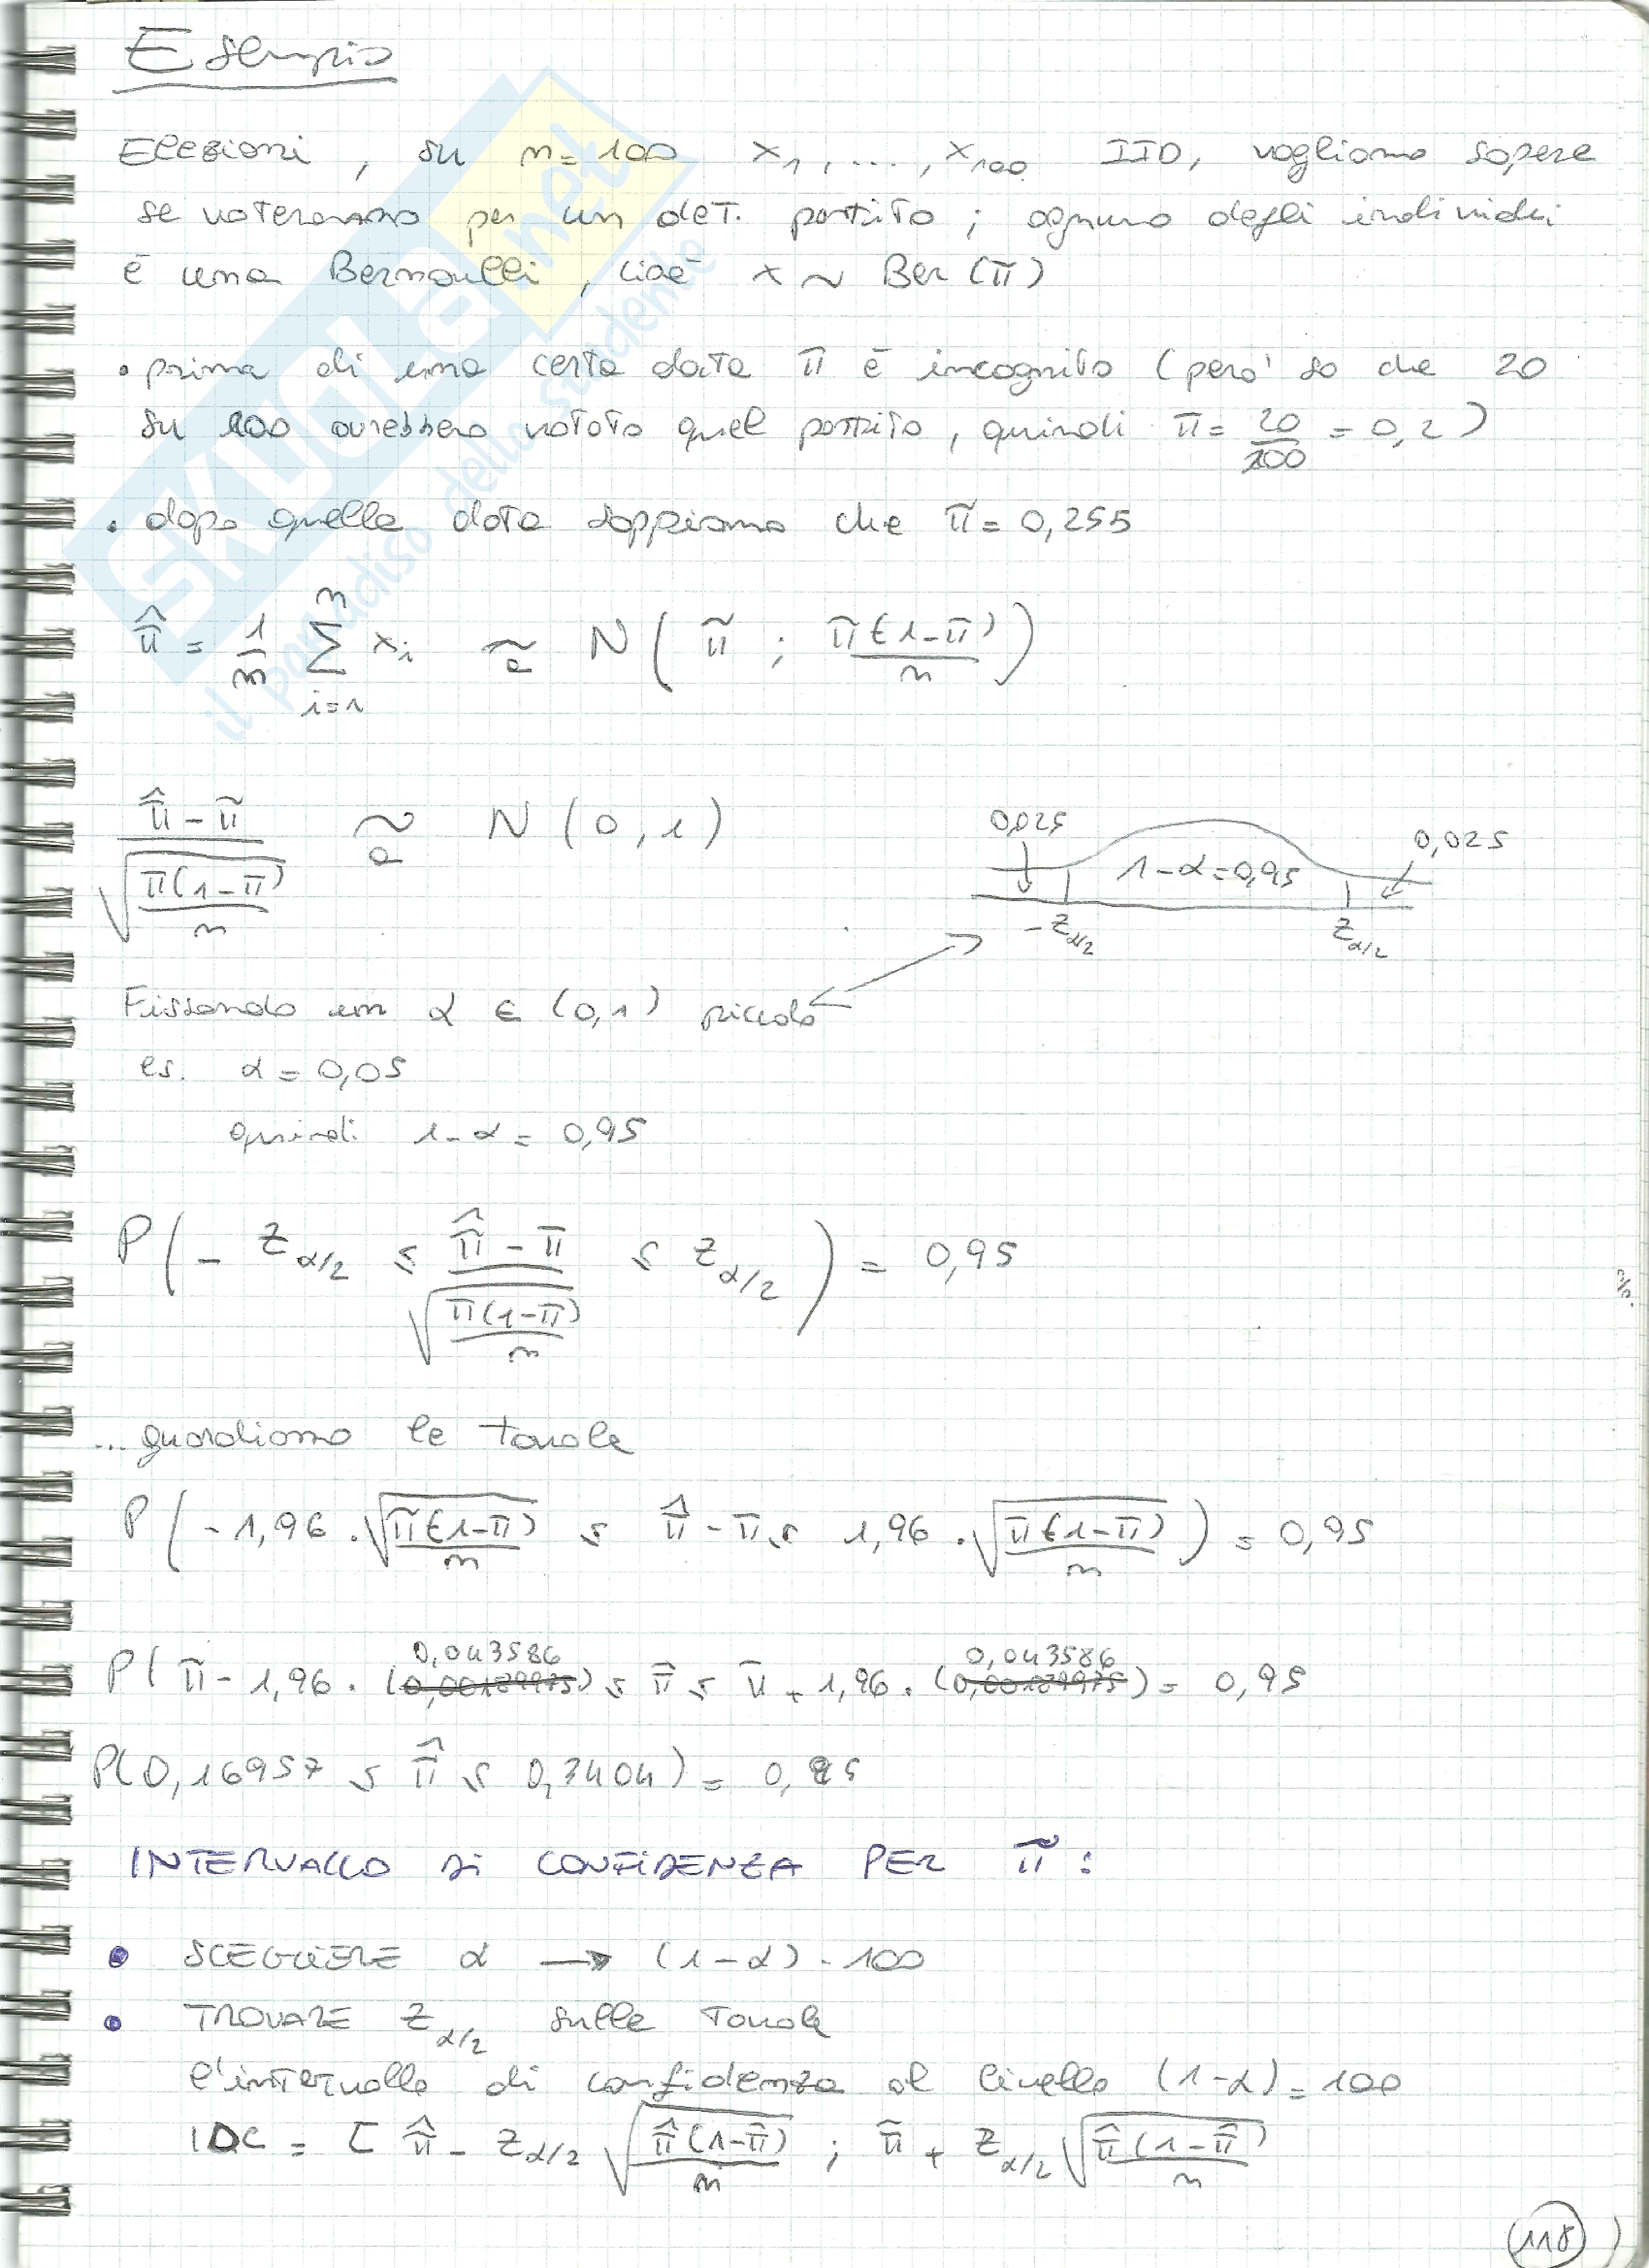 Esempio
Elezioni, su n=100 x₁, ..., x₁₀₀ IID, vogliamo sapere
se voteranno per un det. partito; ognuno degli individui
è una Bernoulli, cioè x ~ Ber(π)
• prima di una certa data π è incognito (però so che 20
su 100 avrebbero votato quel partito, quindi π = 20/100 = 0,2)
• dopo quella data sappiamo che π = 0,255
π̂ = 1/n ∑ᵢ₌₁ⁿ xᵢ ~ₐ N(π ; π(1-π)/n)
(π̂ - π)/√(π(1-π)/n) ~ₐ N(0,1)
0,025
0,025
1-α=0,95
-z_α/2
z_α/2
Fissando un α ∈ (0,1) piccolo
es. α = 0,05
quindi 1-α = 0,95
P(- z_α/2 ≤ (π̂ - π)/√(π(1-π)/n) ≤ z_α/2) = 0,95
... guardiamo le tavole
P(-1,96 · √(π(1-π)/n) ≤ π̂ - π ≤ 1,96 · √(π(1-π)/n)) = 0,95
P(π - 1,96 · (0,043586) ≤ π̂ ≤ π + 1,96 · (0,043586) = 0,95
P(0,16957 ≤ π̂ ≤ 0,3404) = 0,95
INTERVALLO DI CONFIDENZA PER π :
• SCEGLIERE α → (1-α) · 100
• TROVARE z_α/2 sulle Tavole
l'intervallo di confidenza al livello (1-α) = 100
IDC = [ π̂ - z_α/2 √(π̂(1-π̂)/n) ; π̂ + z_α/2 √(π̂(1-π̂)/n)
118
SKUOLA.net
il paradiso dello studente